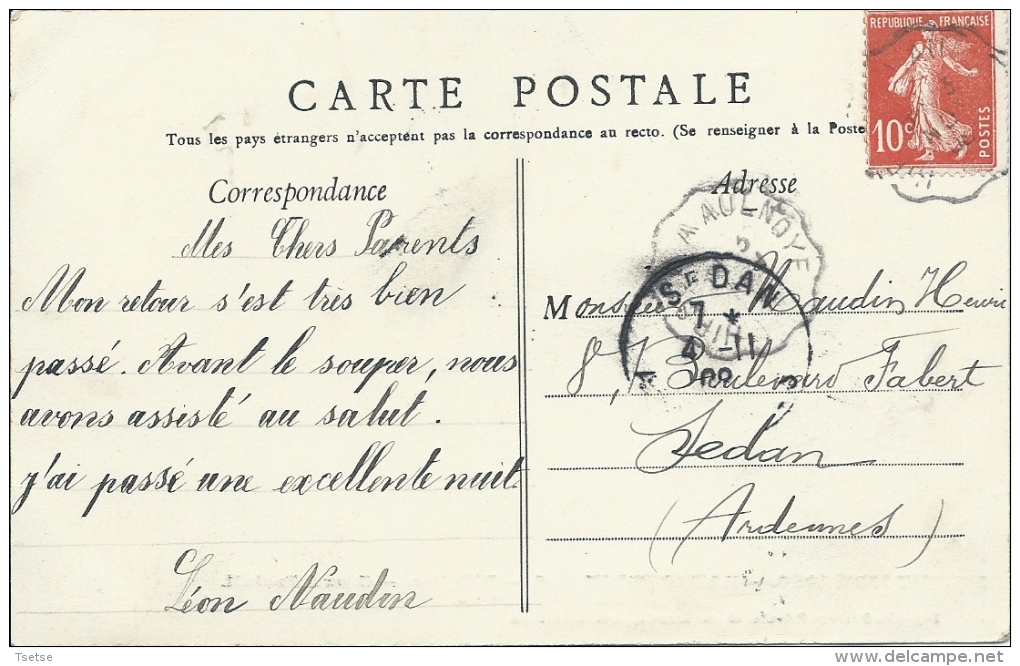 REPUBLIQUE FRANÇAISE
10c
POSTES
CARTE POSTALE
Tous les pays étrangers n'acceptent pas la correspondance au recto. (Se renseigner à la Poste
Correspondance
Adresse
Mes Chers Parents
Mon retour s'est très bien
passé. Avant le souper, nous
avons assisté au salut.
j'ai passé une excellente nuit.
Léon Naudin
AULNOYE
SEDAN
7 *
4 -11
09
Monsieur Naudin Henri
8, Boulevard Fabert
Sedan
(Ardennes)
Tsetse
www.delcampe.net